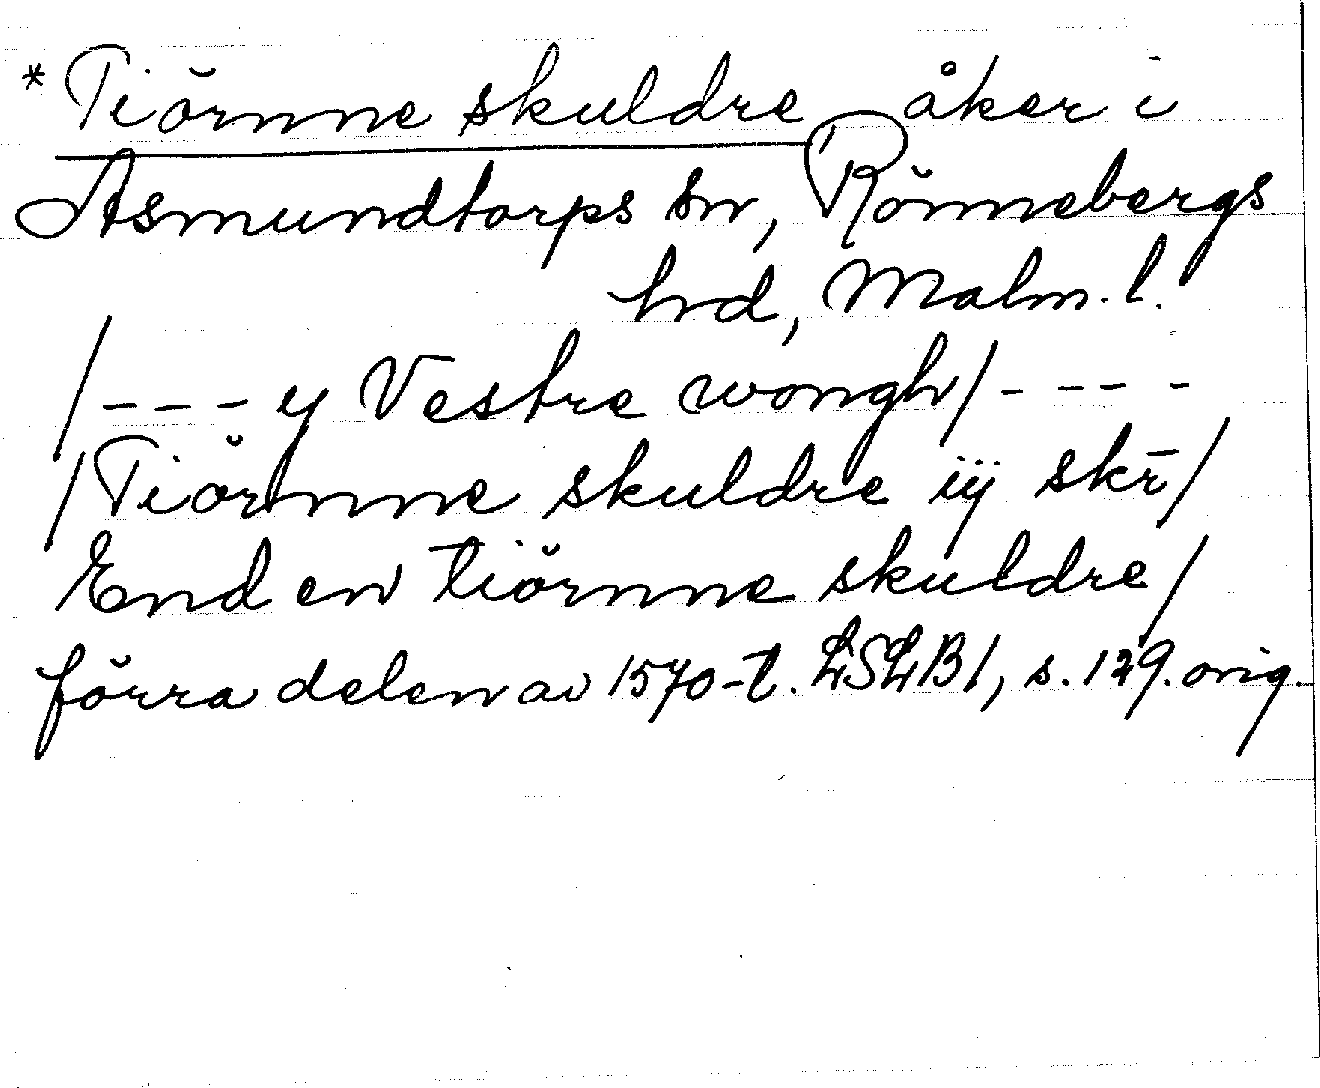 * Tiörnne skuldre åker i
Asmundtorps sn, Rönnebergs
hrd, Malm. l.
/ - - - y Vestre wongh / - - - -
/ Tiörnne skuldre iij skr̄ /
End en tiörnne skuldre /
förra delen av 1570-t. LSLB1, s. 129. orig.